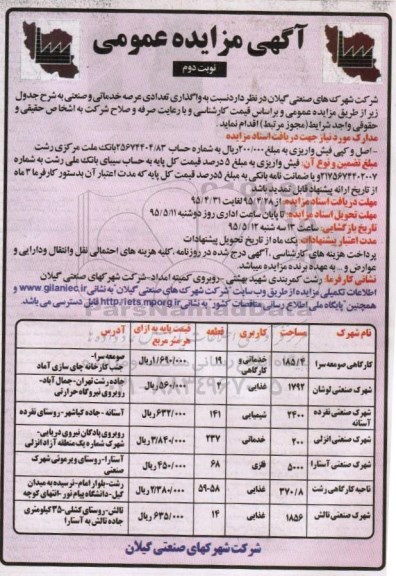 آگهی مزایده عمومی
نوبت دوم
شرکت شهرک های صنعتی گیلان در نظر دارد نسبت به واگذاری تعدادی عرصه خدماتی و صنعتی به شرح جدول
زیر از طریق مزایده عمومی و براساس قیمت کارشناسی و با رعایت صرفه و صلاح شرکت به اشخاص حقیقی و
حقوقی واجد شرایط (مجوز مرتبط) اقدام نماید.
مدارک مورد نیاز جهت دریافت اسناد مزایده
- اصل و کپی فیش واریزی به مبلغ ۲۰۰/۰۰۰ ریال به شماره حساب ۲۵۶۷۴۴۰۴/۸۳ بانک ملت مرکزی رشت
مبلغ تضمین و نوع آن: فیش واریزی به مبلغ ۵ درصد قیمت کل پایه به حساب سیبای بانک ملی رشت به شماره
۲۱۷۵۶۷۴۴۰۲۰۰۷ و یا ضمانت نامه بانکی به مبلغ ۵ درصد قیمت کل پایه که مدت اعتبار آن بدستور کارفرما ۳ ماه
از تاریخ ارائه پیشنهاد قابل تمدید باشد.
مهلت دریافت اسناد مزایده: از ۹۵/۴/۲۸ لغایت ۹۵/۴/۳۱
مهلت تحویل اسناد مزایده: تا پایان ساعت اداری روز دوشنبه ۹۵/۵/۱۱
تاریخ بازگشایی: ساعت ۱۳ سه شنبه ۹۵/۵/۱۲
مدت اعتبار پیشنهادات: یک ماه از تاریخ تحویل پیشنهادات
پرداخت هزینه های کارشناسی، آگهی درج شده در روزنامه، کلیه هزینه های احتمالی نقل و انتقال و دارایی و
عوارض و... به عهده برنده مزایده میباشد.
نشانی کارفرما: رشت کمربندی شهید بهشتی - روبروی کمیته امداد - شرکت شهرکهای صنعتی گیلان
اطلاعات تکمیلی مزایده از طریق وب سایت شرکت شهرک های صنعتی گیلان به نشانی www.gilaniec.ir
و همچنین پایگاه ملی اطلاع رسانی مناقصات کشور به نشانی http://iets.mporg.ir قابل دسترسی می باشد.
نام شهرک مساحت کاربری قطعه قیمت پایه به ازای هر متر مربع آدرس
کارگاهی صومعه سرا ۱۸۵/۴ خدماتی و کارگاهی ۱۹ ۱/۶۹۰/۰۰۰ ریال صومعه سرا- جنب کارخانه چای سازی آماد
شهرک صنعتی لوشان ۱۷۹۲ غذایی ۴ ۵۶۰/۰۰۰ ریال جاده رشت تهران- جمال آباد- روبروی نیروگاه حرارتی
شهرک صنعتی نقرده آستانه ۲۴۰۰ شیمیایی ۱۴۱ ۶۳۲/۰۰۰ ریال آستانه - جاده کیاشهر- روستای نقرده
شهرک صنعتی انزلی ۲۰۰ خدماتی ۲۳۷ ۳/۸۴۰/۰۰۰ ریال روبروی پادگان نیروی دریایی- شهرک شماره یک منطقه آزاد انزلی
شهرک صنعتی آستارا ۵۰۰۰ فلزی ۶۸ ۴۵۰/۰۰۰ ریال آستارا- روستای ویرمونی شهرک صنعتی
ناحیه کارگاهی رشت ۳۷۰/۸ غذایی ۵۸-۵۹ ۲/۳۸۰/۰۰۰ ریال رشت- بلوار امام- نرسیده به میدان گیل- دانشگاه پیام نور- انتهای کوچه
شهرک صنعتی تالش ۱۸۵۶ غذایی ۱۴ ۶۳۵/۰۰۰ ریال تالش- روستای کشلی- ۳۵ کیلومتری جاده تالش به آستارا
شرکت شهرکهای صنعتی گیلان